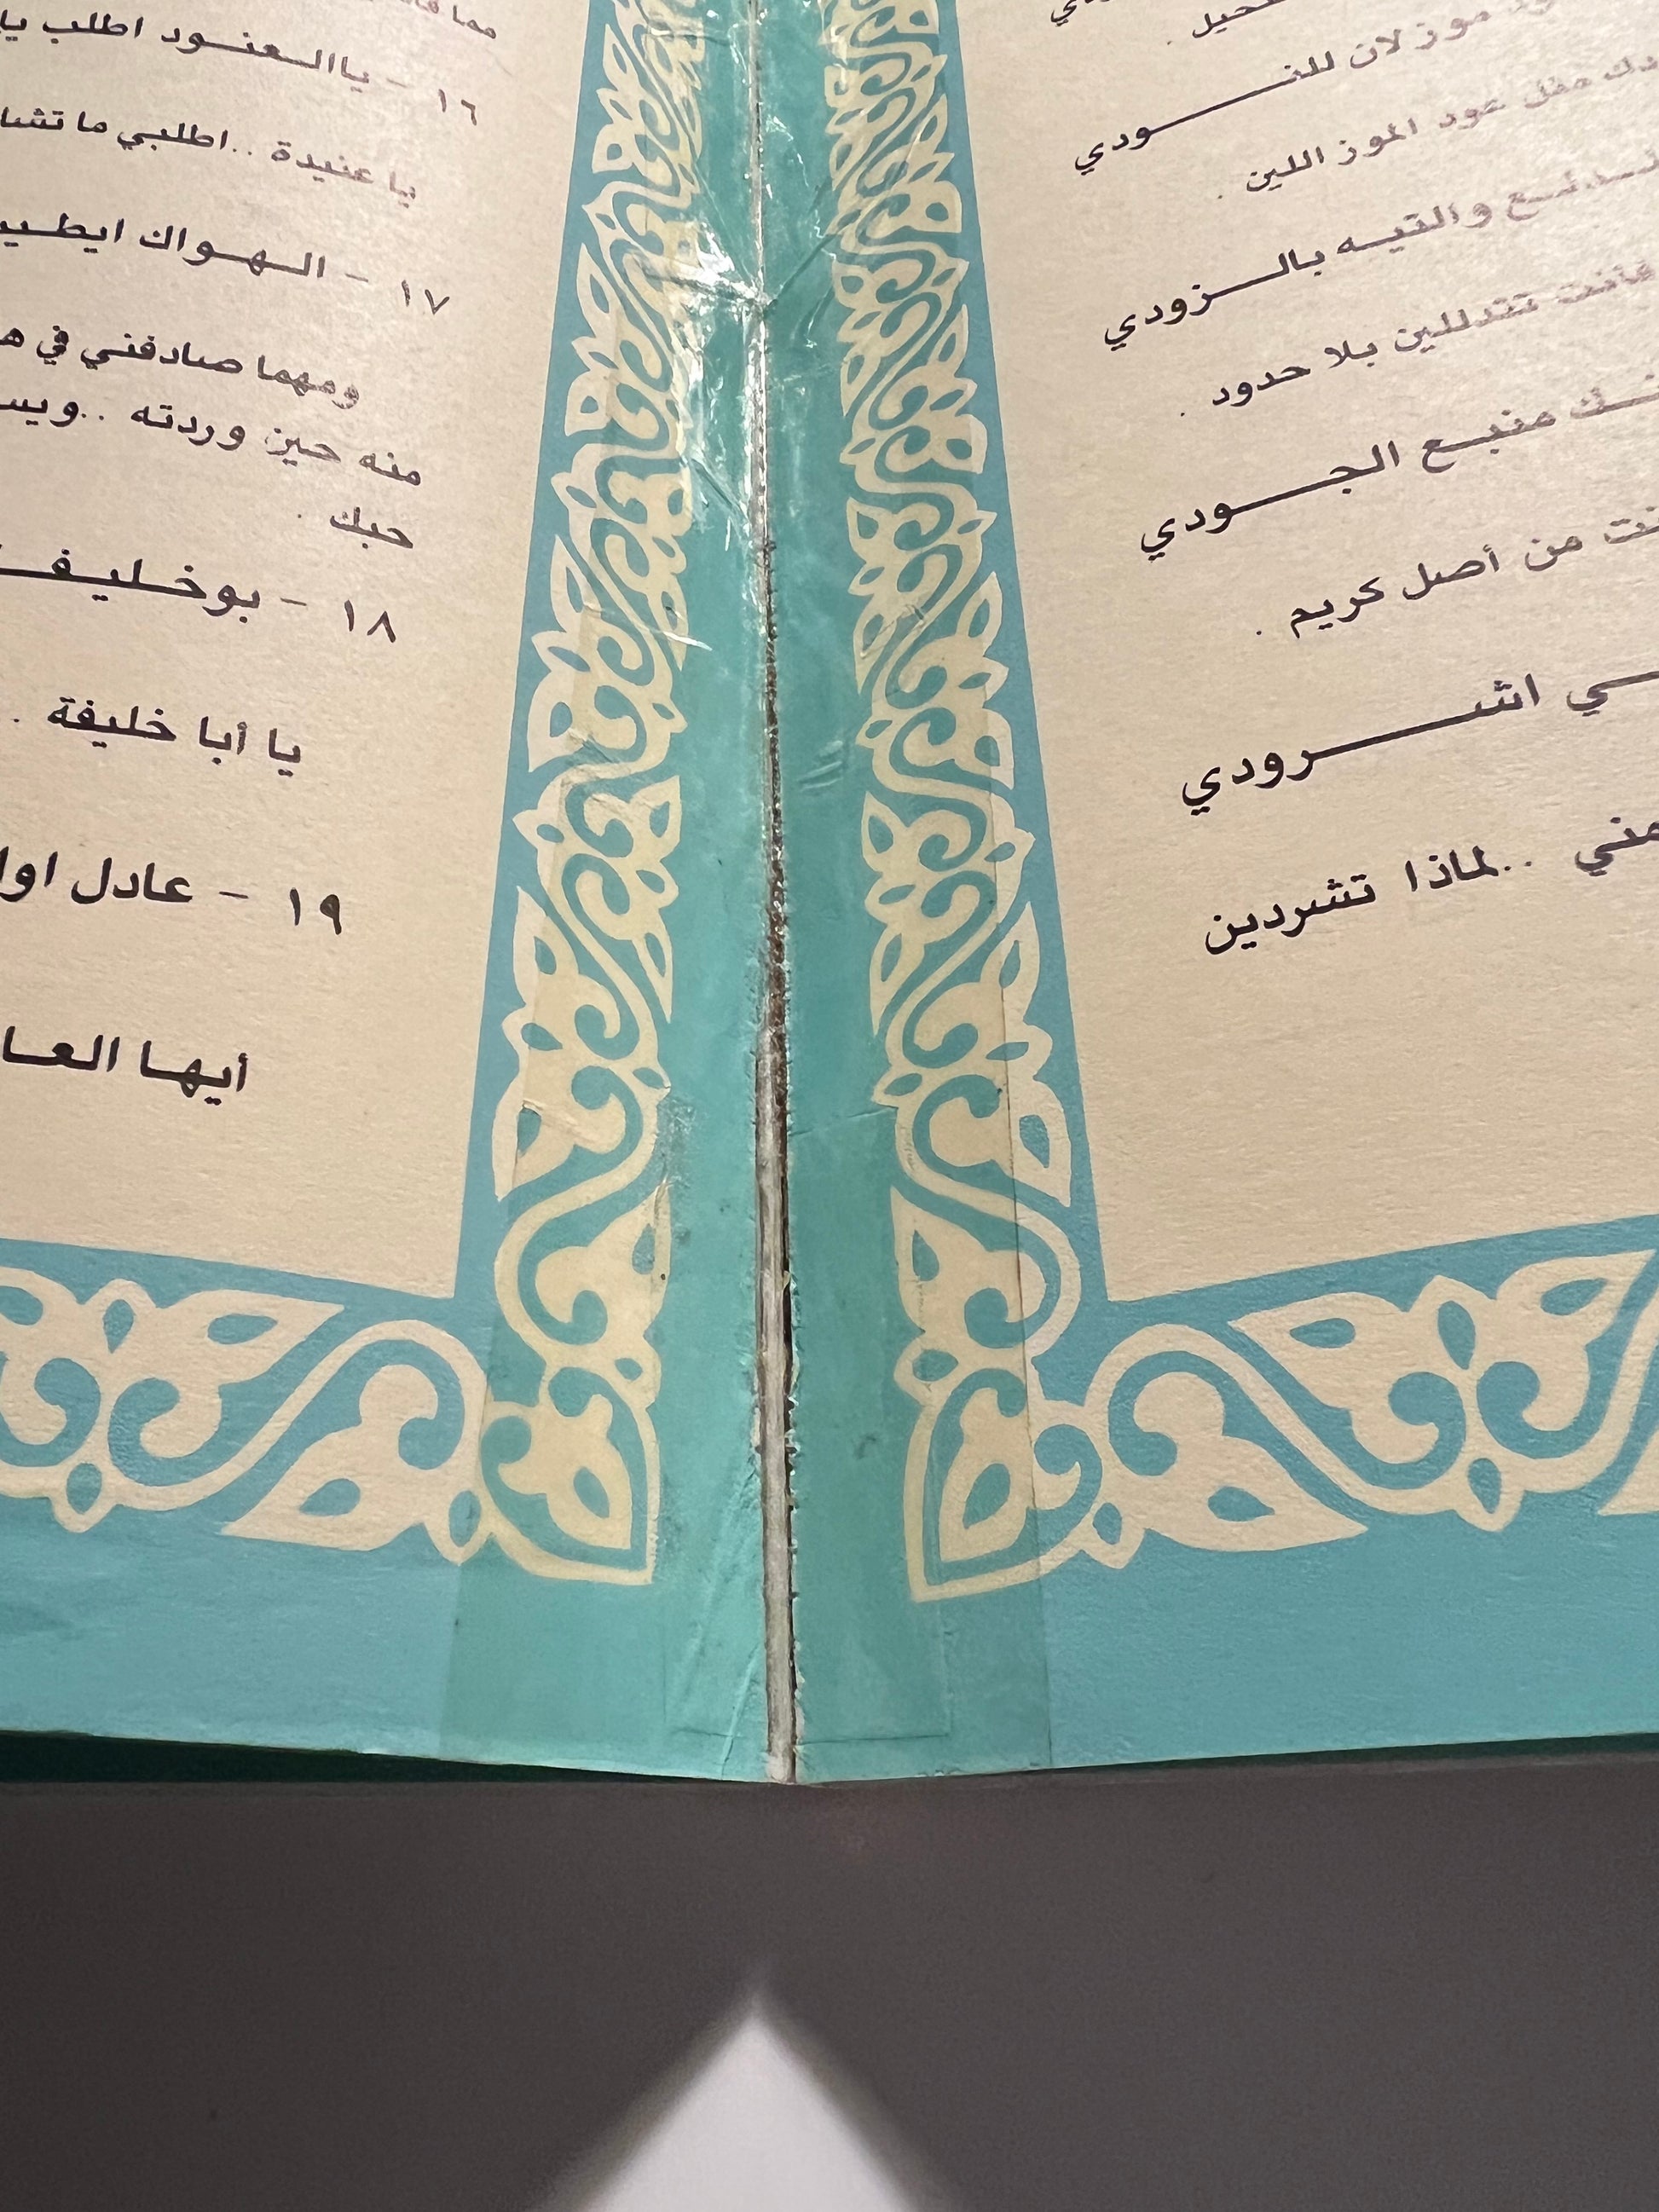 نحيل .
موز لان للنـــودي
عود الموز اللين .
والتيـه بالــزودي
فأنت تتدللين بلا حدود .
منبـع الجـــودي
من أصل كريم .
اشـــــرودي
مني ..لماذا تشردين
١٦ - ياالـعنـسود اطلب
يا عنيدة ..اطلبي ما تشا
١٧ - الـهـواك
ومهما صادفني في
منه حين وردته ..
حبك .
١٨ - بوخـليـفـ
يا أبا خليفة .
١٩ - عادل
أيهـا العـا